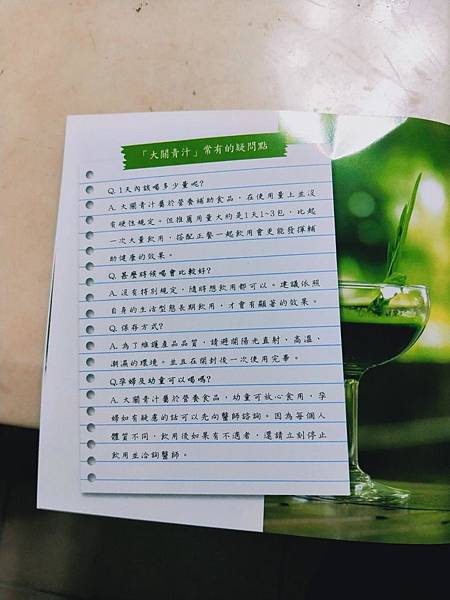 「大關青汁」常有的疑問點
Q. 1天內該喝多少量呢?
A. 大關青汁屬於營養補助食品, 在使用量上並沒
有硬性規定。但推薦用量大約是1天1~3包, 比起
一次大量飲用, 搭配正餐一起飲用會更能發揮輔
助健康的效果。
Q. 甚麼時候喝會比較好?
A. 沒有特別規定, 隨時想飲用都可以。建議依照
自身的生活型態長期飲用, 才會有顯著的效果。
Q. 保存方式?
A. 為了維護產品品質, 請避開陽光直射、高溫、
潮濕的環境。並且在開封後一次使用完畢。
Q.孕婦及幼童可以喝嗎?
A. 大關青汁屬於營養食品, 幼童可放心食用, 孕
婦如有疑慮的話可以先向醫師諮詢。因為每個人
體質不同, 飲用後如果有不適者, 還請立刻停止
飲用並洽詢醫師。